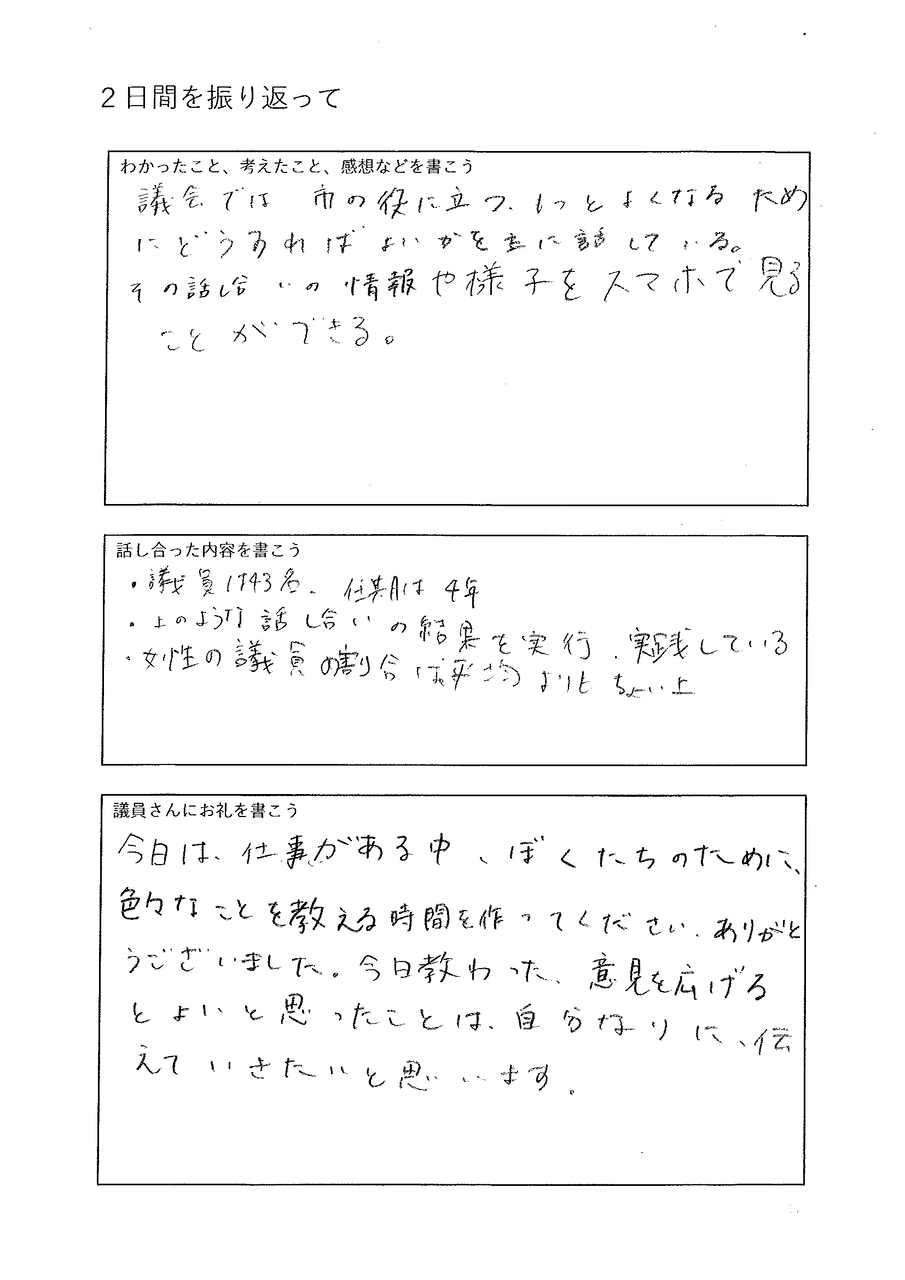 2日間を振り返って
わかったこと、考えたこと、感想などを書こう
議会では市の役に立つ、もっとよくなるため
にどうすればよいかを主に話している。
その話し合いの情報や様子をスマホで見る
ことができる。
話し合った内容を書こう
・議員は43名、任期は4年
・上のような話し合いの結果を実行、実践している
・女性の議員の割合は平均よりもちょい上
議員さんにお礼を書こう
今日は、仕事がある中、ぼくたちのために、
色々なことを教える時間を作ってください、ありがと
うございました。今日教わった、意見を広げる
とよいと思ったことは、自分なりに、伝
えていきたいと思います。